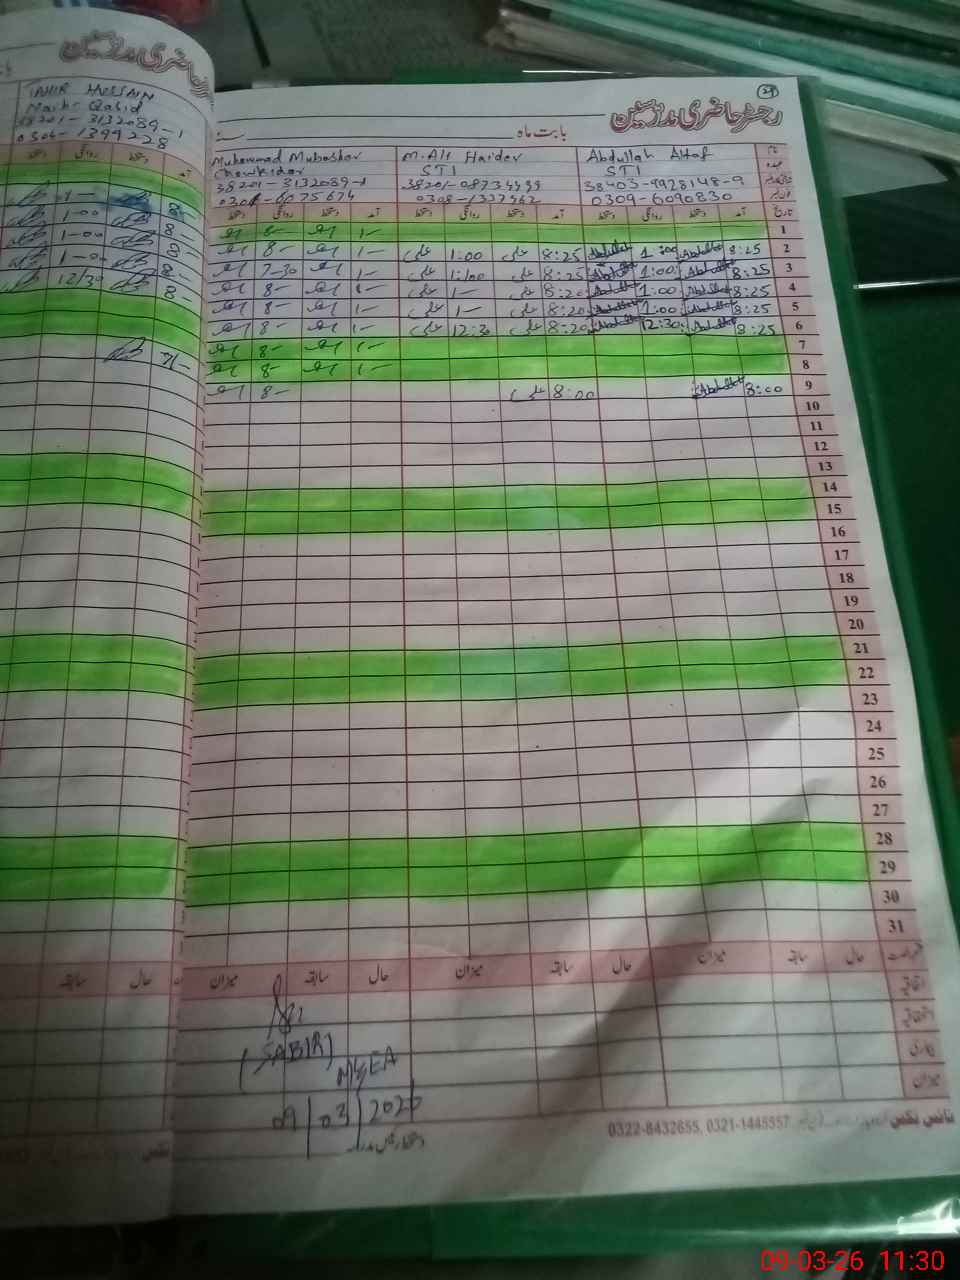 رجسٹر حاضری مدرسین
بابت ماہ
TAHIR HUSSAIN
Naib Qasid
38201-3132089-1
0306-1399228
نام
Muhammad Mubashar
M. Ali Haider
Abdullah Altaf
عہدہ
Chowkidar
STI
STI
38201-3132089-1
38403-9928148-9
0309-6090830
تاریخ آمد دستخط روانگی دستخط آمد دستخط روانگی دستخط آمد دستخط روانگی دستخط
1 1- 8-
2 8:25 Abdullah 1:00 Abdullah 8:25 علی 1:00 علی 1- 8-
3 8:25 Abdullah 1:00 Abdullah 8:25 علی 1:00 علی 1- 7-30
4 8:25 Abdullah 1:00 Abdullah 8:20 علی 1- علی 1- 8-
5 8:25 Abdullah 1:00 Abdullah 8:20 علی 1- علی 1- 8-
6 8:25 Abdullah 12:30 Abdullah 8:20 علی 12:3 علی 1- 8-
7 1- 8-
8 1- 8-
9 8:00 Abdullah 8:00 علی 8-
10
11
12
13
14
15
16
17
18
19
20
21
22
23
24
25
26
27
28
29
30
31
حال سابقہ میزان حال سابقہ میزان حال سابقہ میزان
اتفاقیہ
استحقاقیہ
بیماری
میزان
(SABIR)
MEA
09/03/2026
دستخط رئیس مدرسہ
0322-8432655, 0321-1445557
09-03-26 11:30